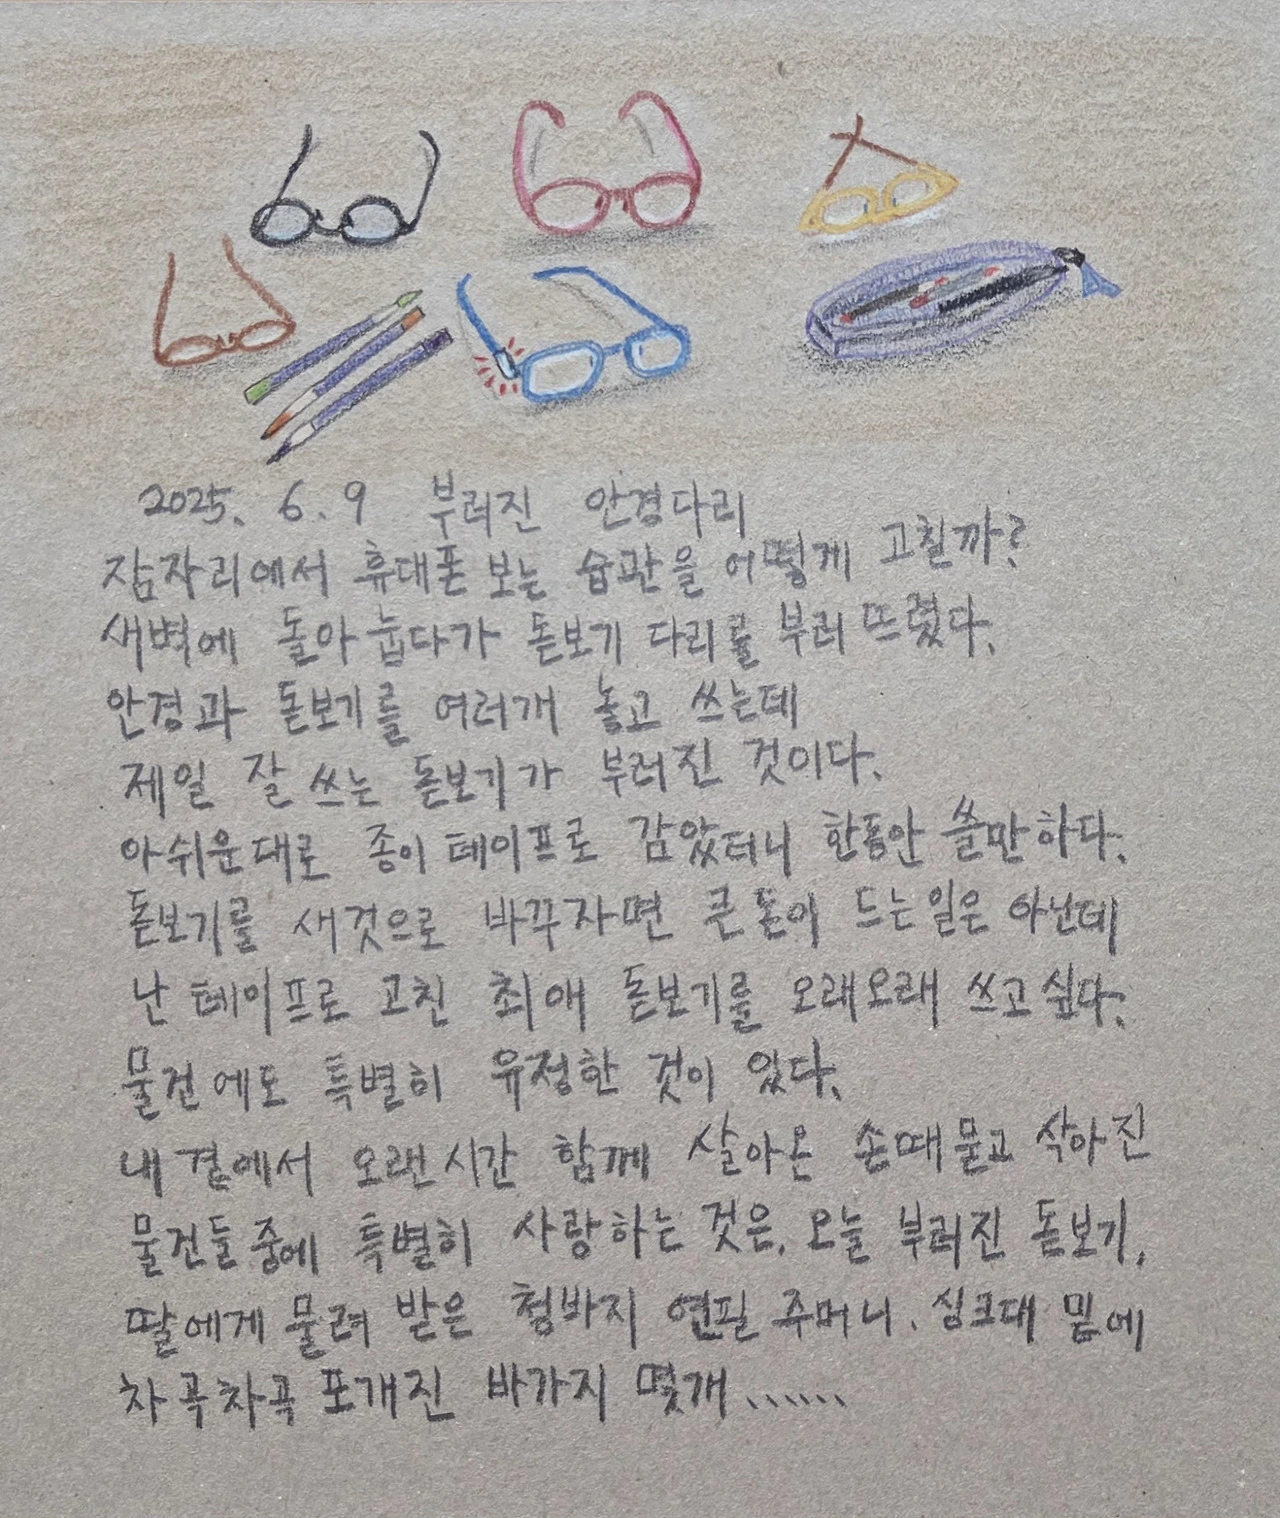 2025. 6. 9 부러진 안경다리
잠자리에서 휴대폰 보는 습관을 어떻게 고칠까?
새벽에 돌아눕다가 돋보기 다리를 부러뜨렸다.
안경과 돋보기를 여러개 놓고 쓰는데
제일 잘 쓰는 돋보기가 부러진 것이다.
아쉬운대로 종이테이프로 감았더니 한동안 쓸만하다.
돋보기를 새것으로 바꾸자면 큰 돈이 드는일은 아닌데
난 테이프로 고친 최애 돋보기를 오래오래 쓰고싶다.
물건에도 특별히 유정한 것이 있다.
내 곁에서 오랜시간 함께 살아온 손때묻고 삭아진
물건들 중에 특별히 사랑하는 것은, 오늘 부러진 돋보기,
딸에게 물려 받은 청바지 연필 주머니. 싱크대 밑에
차곡차곡 포개진 바가지 몇개......